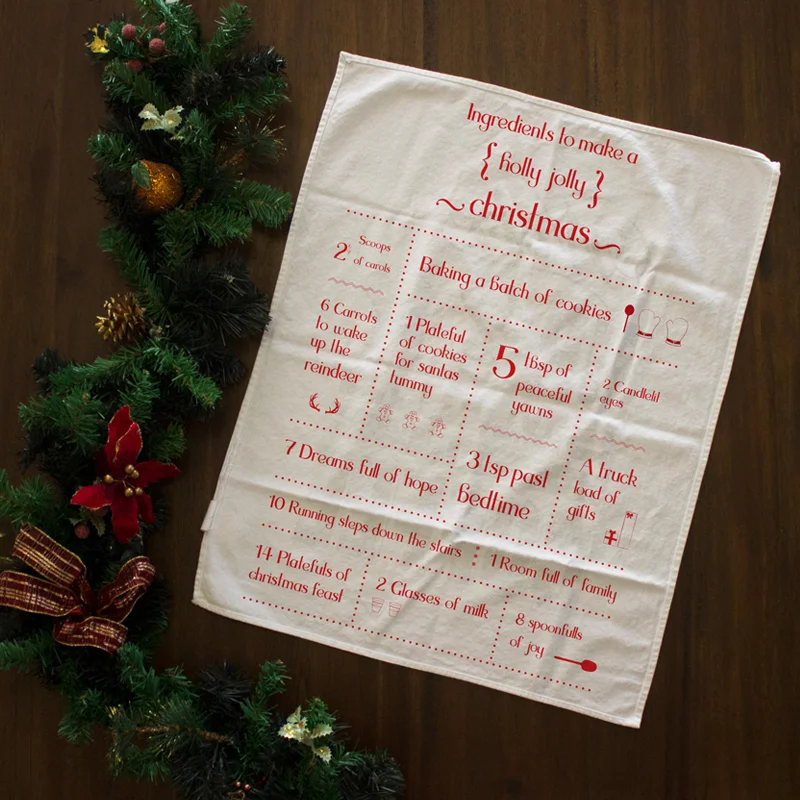 Ingredients to make a
{ holly jolly }
~christmas~
2 Scoops
of carols
Baking a batch of cookies
6 Carrots
to wake
up the
reindeer
1 Plateful
of cookies
for santas
tummy
5 tbsp of
peaceful
yawns
2 Candlelit
eyes
7 Dreams full of hope
3 tsp past
bedtime
A truck
load of
gifts
10 Running steps down the stairs
1 Room full of family
14 Platefuls of
christmas feast
2 Glasses of milk
8 spoonfulls
of joy